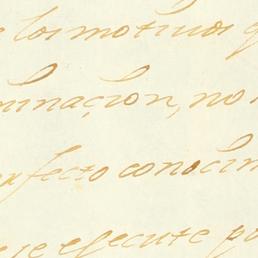 e los motivos q
minaçion, no
rfecto conocim
e se efecute p